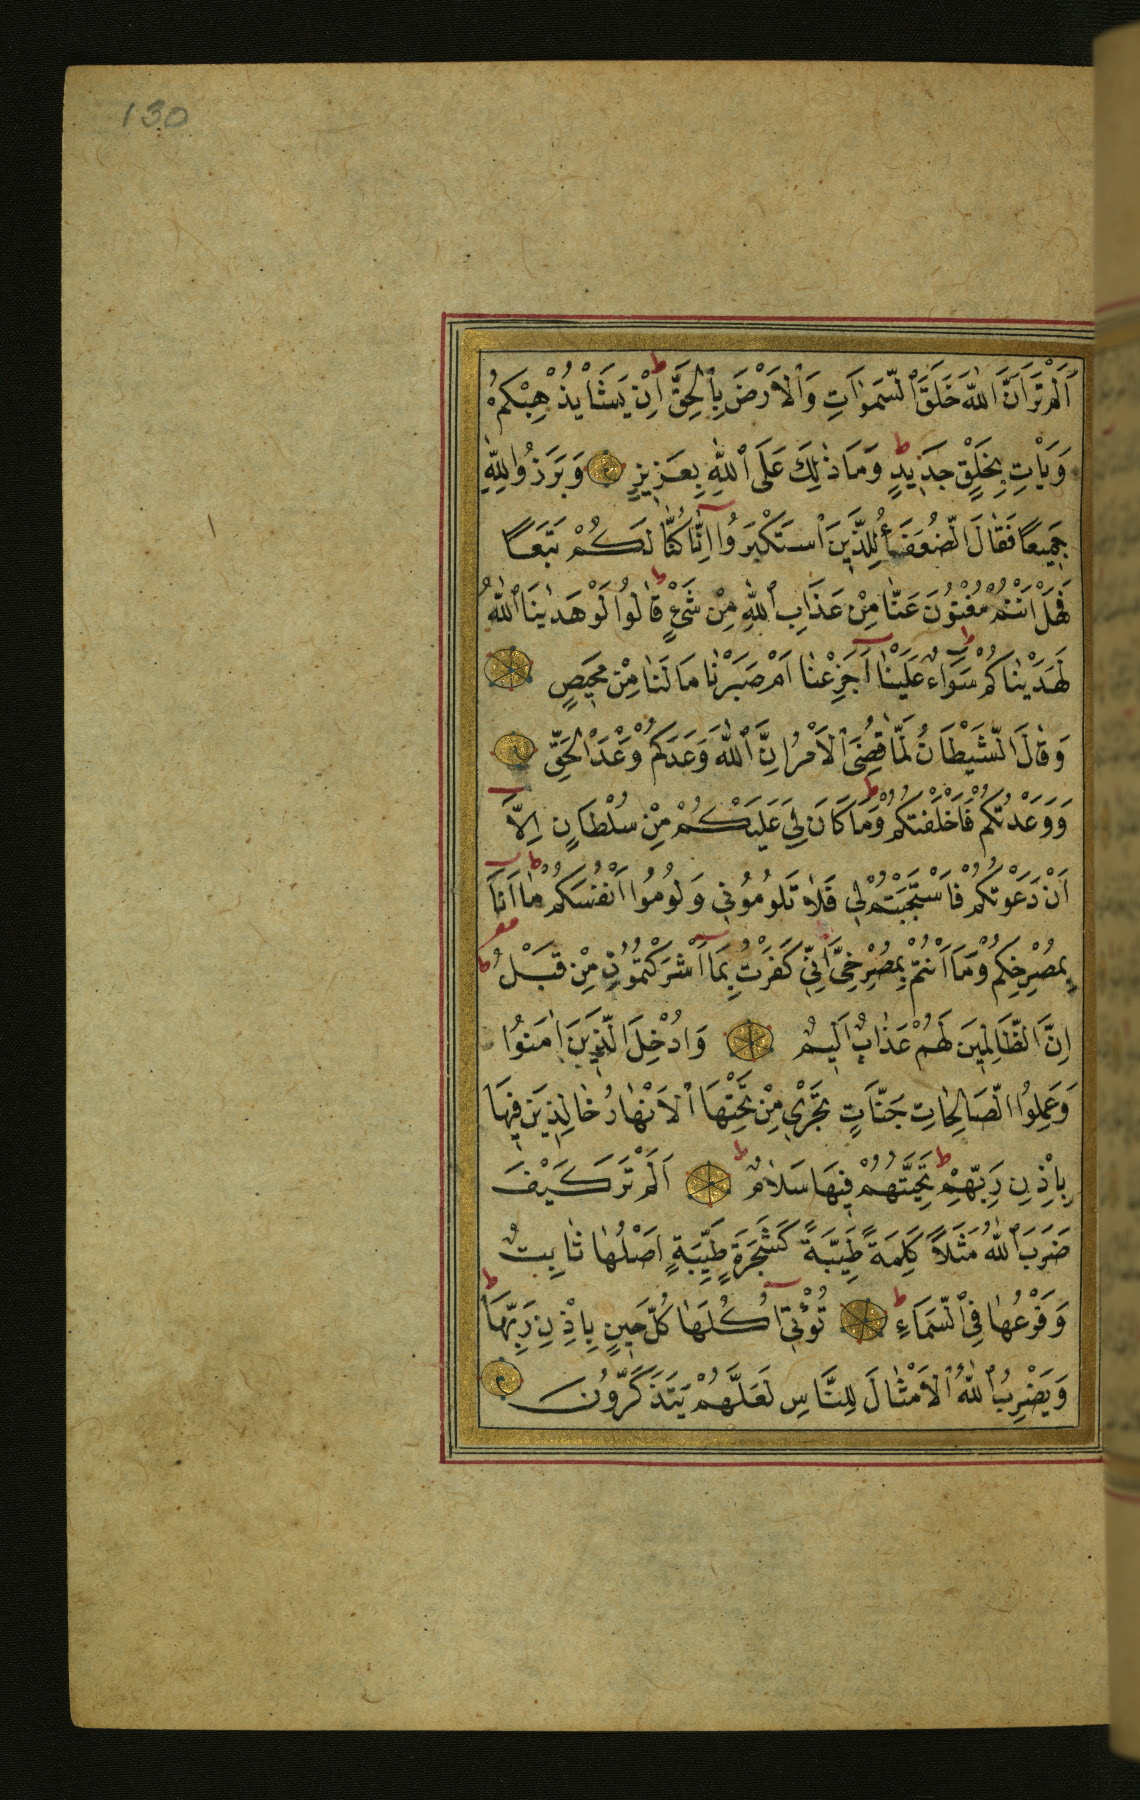 130
اَلَمْ تَرَ اَنَّ اللّٰهَ خَلَقَ السَّمٰوَاتِ وَالْاَرْضَ بِالْحَقِّ ط اِنْ يَشَاْ يُذْهِبْكُمْ
وَيَاْتِ بِخَلْقٍ جَدِيدٍ ط وَمَا ذٰلِكَ عَلَى اللّٰهِ بِعَزِيزٍ وَبَرَزُوا لِلّٰهِ
جَمِيعًا فَقَالَ الضُّعَفَٓؤُا لِلَّذِينَ اسْتَكْبَرُوا اِنَّا كُنَّا لَكُمْ تَبَعًا
فَهَلْ اَنْتُمْ مُغْنُونَ عَنَّا مِنْ عَذَابِ اللّٰهِ مِنْ شَيْءٍ ط قَالُوا لَوْ هَدٰينَا اللّٰهُ
لَهَدَيْنَاكُمْ ط سَوَاءٌ عَلَيْنَا اَجَزِعْنَا اَمْ صَبَرْنَا مَا لَنَا مِنْ مَحِيصٍ
وَقَالَ الشَّيْطَانُ لَمَّا قُضِيَ الْاَمْرُ اِنَّ اللّٰهَ وَعَدَكُمْ وَعْدَ الْحَقِّ
وَوَعَدْتُكُمْ فَاَخْلَفْتُكُمْ ط وَمَا كَانَ لِيَ عَلَيْكُمْ مِنْ سُلْطَانٍ اِلَّا
اَنْ دَعَوْتُكُمْ فَاسْتَجَبْتُمْ لِي فَلَا تَلُومُونِي وَلُومُوا اَنْفُسَكُمْ ط مَا اَنَا
بِمُصْرِخِكُمْ وَمَا اَنْتُمْ بِمُصْرِخِيَّ اِنِّي كَفَرْتُ بِمَا اَشْرَكْتُمُونِ مِنْ قَبْلُ ط
اِنَّ الظَّالِمِينَ لَهُمْ عَذَابٌ اَلِيمٌ وَاُدْخِلَ الَّذِينَ اٰمَنُوا
وَعَمِلُوا الصَّالِحَاتِ جَنَّاتٍ تَجْرِي مِنْ تَحْتِهَا الْاَنْهَارُ خَالِدِينَ فِيهَا
بِاِذْنِ رَبِّهِمْ ط تَحِيَّتُهُمْ فِيهَا سَلَامٌ ط اَلَمْ تَرَ كَيْفَ
ضَرَبَ اللّٰهُ مَثَلًا كَلِمَةً طَيِّبَةً كَشَجَرَةٍ طَيِّبَةٍ اَصْلُهَا ثَابِتٌ
وَفَرْعُهَا فِي السَّمَاءِ ط تُؤْتِي اُكُلَهَا كُلَّ حِينٍ بِاِذْنِ رَبِّهَا ط
وَيَضْرِبُ اللّٰهُ الْاَمْثَالَ لِلنَّاسِ لَعَلَّهُمْ يَتَذَكَّرُونَ